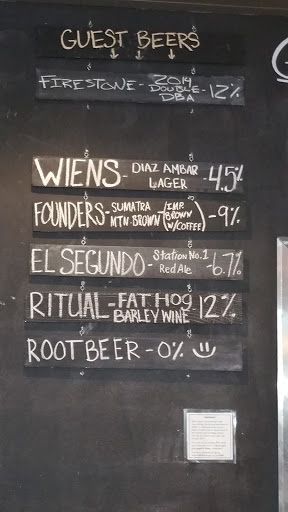 GUEST BEERS
FIRESTONE - 2014 DOUBLE DBA - 12%
WIENS - DIAZ AMBAR LAGER - 4.5%
FOUNDERS - SUMATRA MTN. BROWN (IMP. BROWN W/COFFEE) - 9%
EL SEGUNDO - Station No. 1 Red Ale - 6.7%
RITUAL - FAT HOG BARLEY WINE 12%
ROOT BEER - 0%